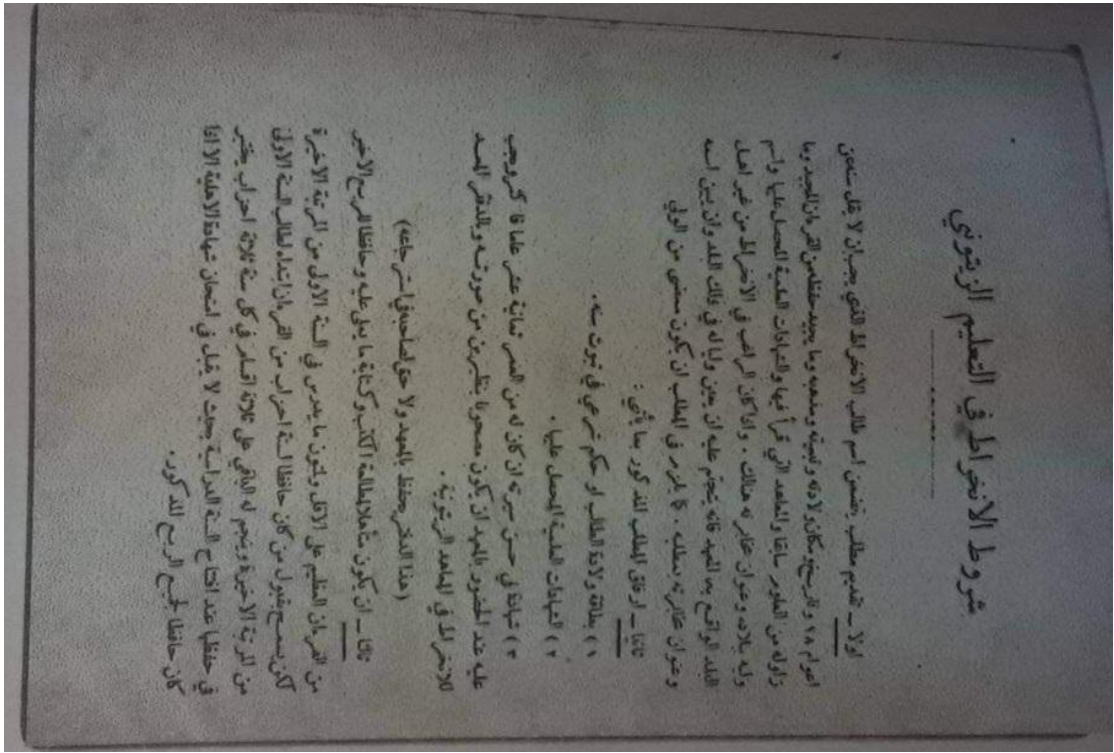 شروط الانخراط في التعليم الزيتوني
اولا ــ تقديم مطلب يتضمن اسم طالب الانخراط الذي يجب ان لا يقل سنه عن
اعوام ١٨ وتاريخ ومكان ولادته ونسبته ومذهبه وما يجيد حفظه من القرءان المجيد وما
زاوله من العلوم سابقا والمعاهد التي قرأ فيها والشهادات العلمية المحصل عليها واسم
وليه ببلاده وعنوان مخابرته هنالك . واذا كان الراغب في الانخراط من غير اهل
البلد الواقع به المعهد فانه يتحتم عليه ان يعين وليا له في ذلك البلد وان يبين اسمه
وعنوان مخابرته بمطلبه . كما يلزم في المطلب ان يكون ممضى من الولي
ثانيا ــ ارفاق المطلب المذكور بما يأتي :
١ ) بطاقة ولادة الطالب او حكم شرعي في ثبوت سنه .
٢ ) الشهادات العلمية المحصل عليها .
٣ ) شهادة في حسن سيرته ان كان له من العمر ثمانية عشر عاما فاكثر ويجب
عليه عند الحضور بالمعهد ان يكون مصحوبا بنظيرين من صورته وبالدفتر المعد
للانخراط في المعاهد الزيتونية .
(هذا الدفتر يحفظ بالمعهد ولا حق لصاحبه في استرجاعه)
ثالثا ــ ان يكون متأهلا لمطالعة الكتب وكتابة ما يملى عليه وحافظا للربع الاخير
من القرءان العظيم على الاقل ولمتون ما يدرس في السنة الاولى من المرتبة الاخيرة
لكن يسمح بقبول من كان حافظا لستة احزاب من القرءان ابتداء لطالب السنة الاولى
من المرتبة الاخيرة وينجم له الباقي على ثلاثة اقساط في كل سنة ثلاثة احزاب يختبر
في حفظها عند افتتاح السنة الدراسية بحيث لا يقبل في امتحان شهادة الاهلية الا اذا
كان حافظا لجميع الربع المذكور .